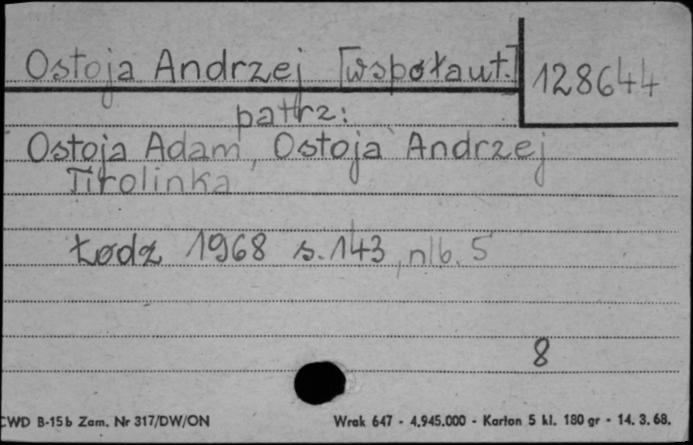 Ostoja Andrzej [współaut.] 128644
patrz:
Ostoja Adam, Ostoja Andrzej
Tirolinka
Łodz 1968 s. 143, nlb. 5
8
CWD B-15b Zam. Nr 317/DW/ON Wrak 647 - 4.945.000 - Karton 5 kl. 180 gr - 14. 3. 68.